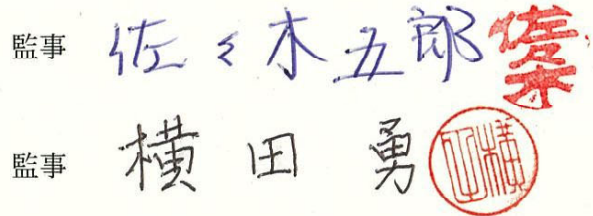 監事 佐々木五郎 佐々木
監事 横田勇 横田